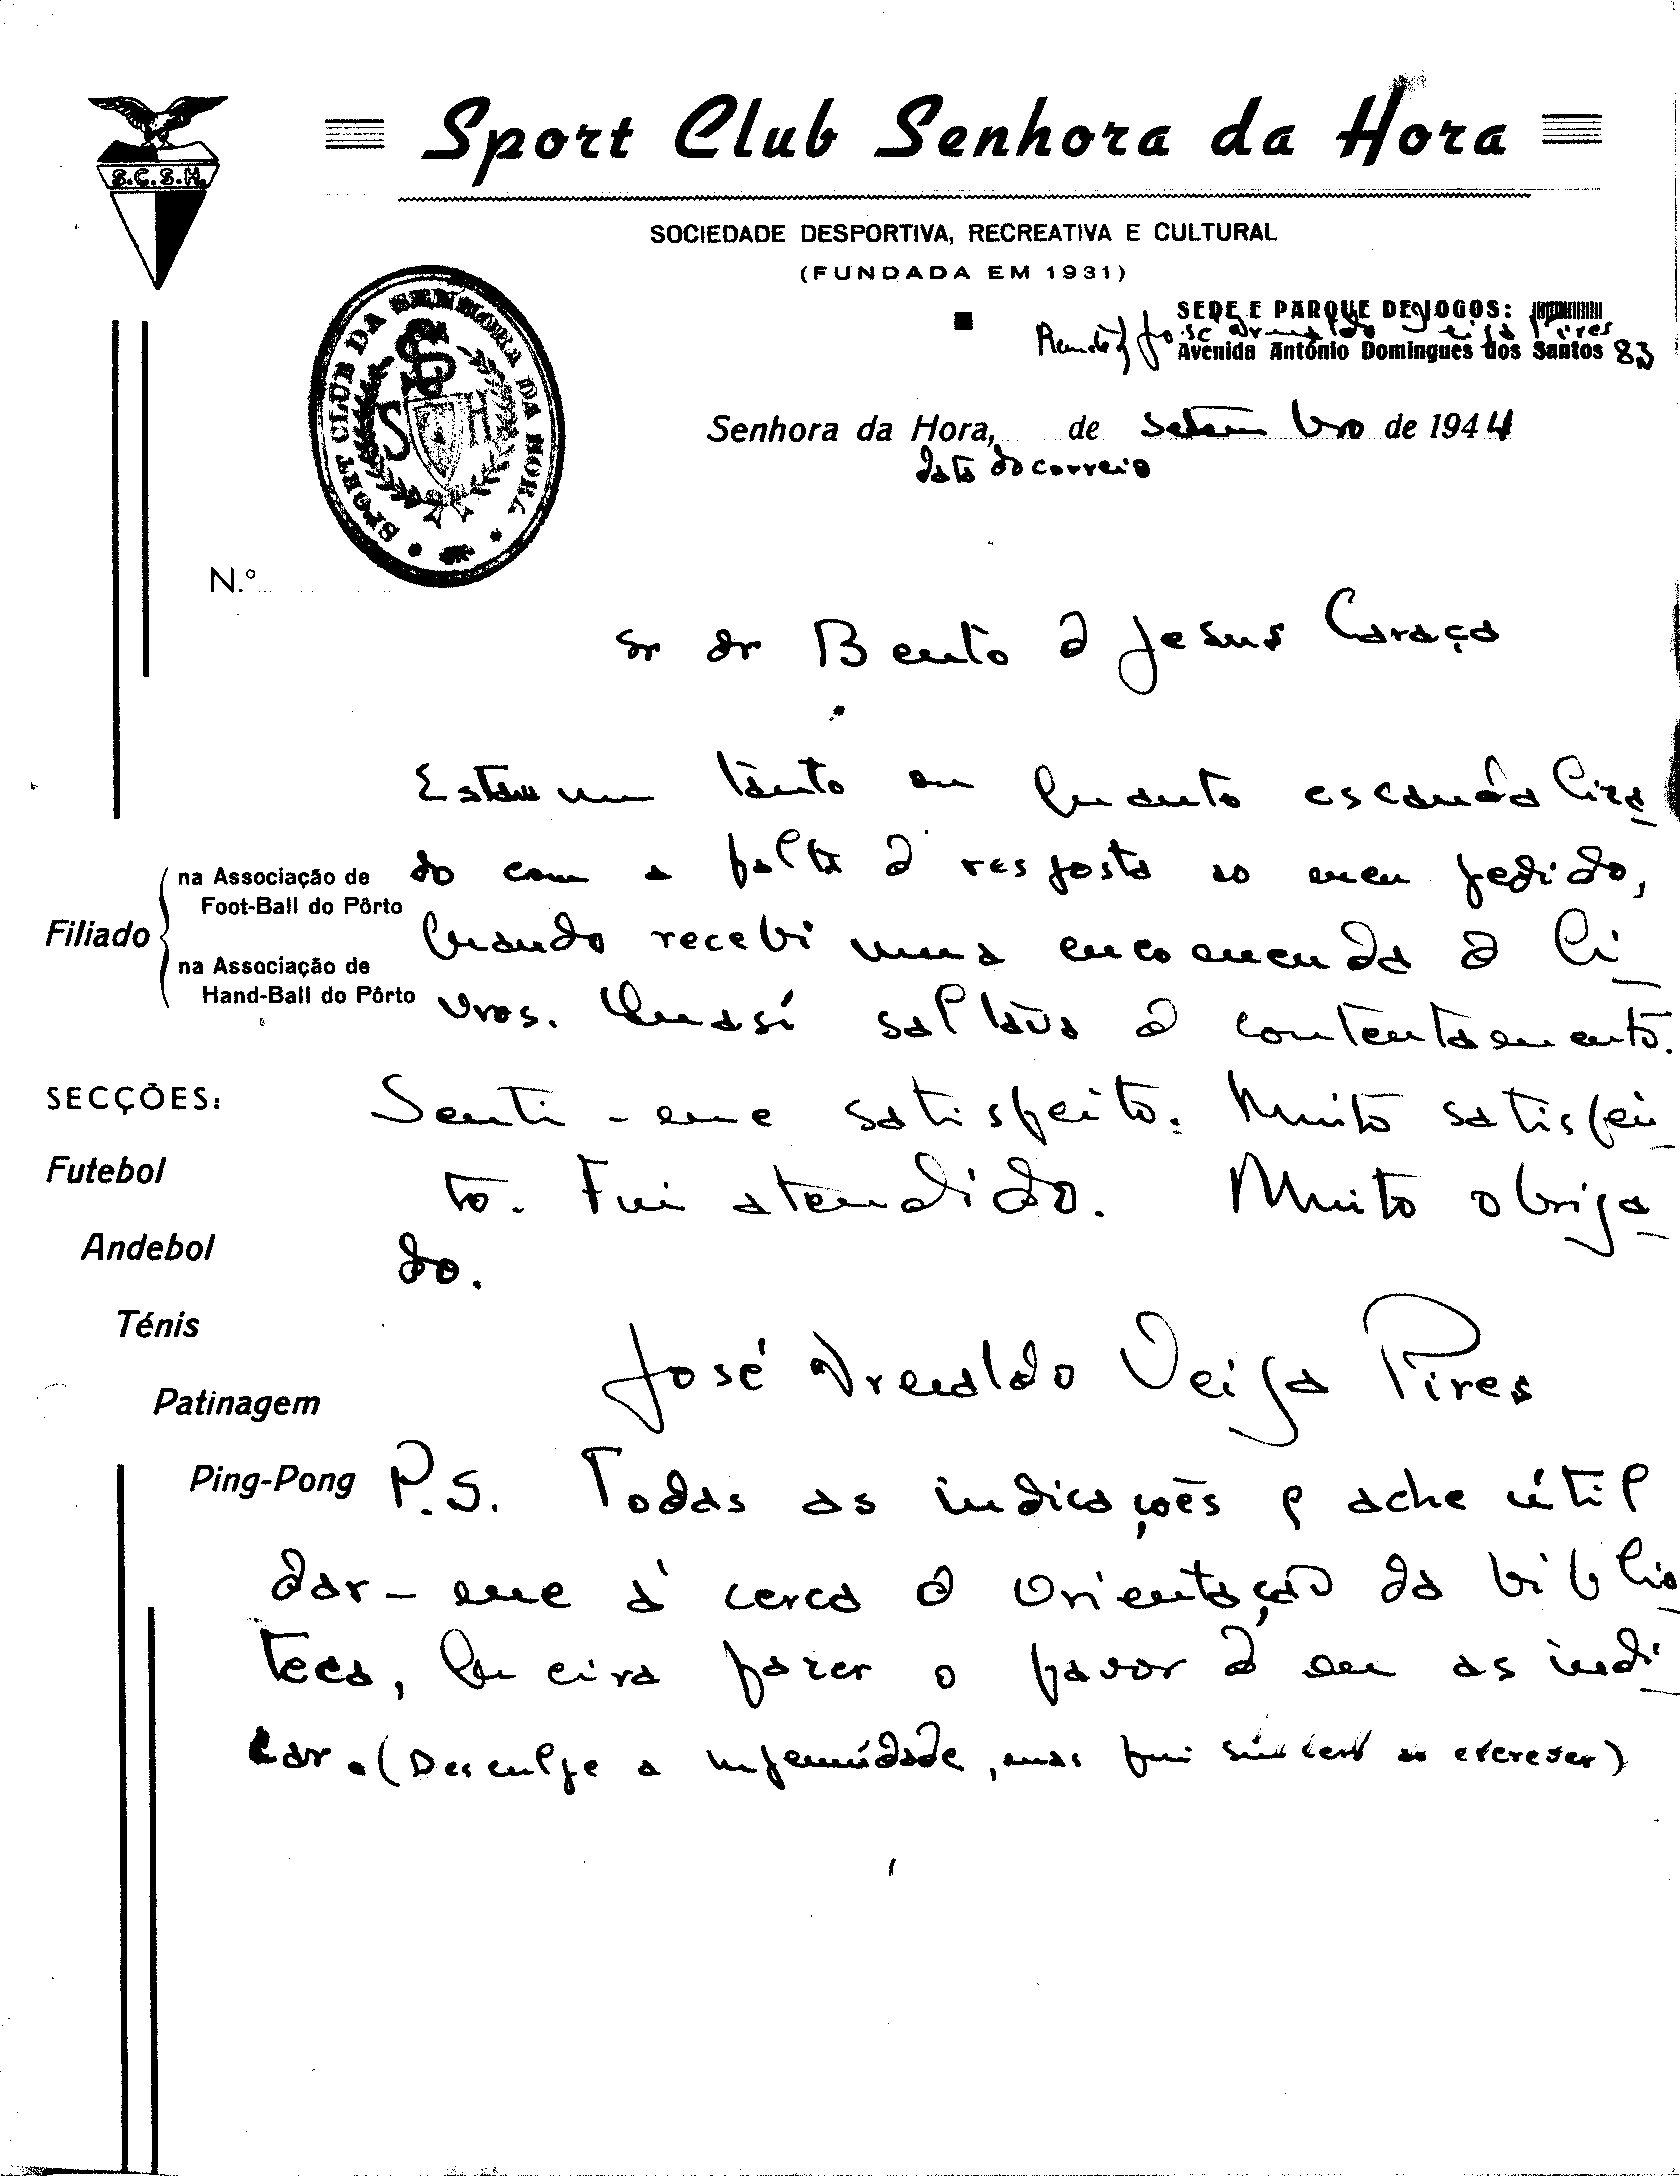 Sport Club Senhora da Hora
S.C.S.H.
SOCIEDADE DESPORTIVA, RECREATIVA E CULTURAL
(FUNDADA EM 1931)
SEDE E PARQUE DE JOGOS:
José Arnaldo Veiga Pires
Avenida António Domingues dos Santos 83
SPORT CLUB DA SENHORA DA HORA
Senhora da Hora, de Setembro de 1944
data do correio
N.º
Sr dr Bento d Jesus Caraça
Estava um tanto ou quanto escandaliza-
do com a falta d resposta ao meu pedido,
quando recebi uma encomenda d li-
vros. Quasí saltava d contentamento.
Senti-me satisfeito. Muito satisfei-
to. Fui atendido. Muito obriga-
do.
José Arnaldo Veiga Pires
P.S. Todas as indicações q ache útil
dar-me á cerca d orientação da biblio-
teca, queira fazer o favor d me as indi-
car. (Desculpe a ingenuídade, mas fui ao escrever)
Filiado
na Associação de
Foot-Ball do Pôrto
na Associação de
Hand-Ball do Pôrto
SECÇÕES:
Futebol
Andebol
Ténis
Patinagem
Ping-Pong